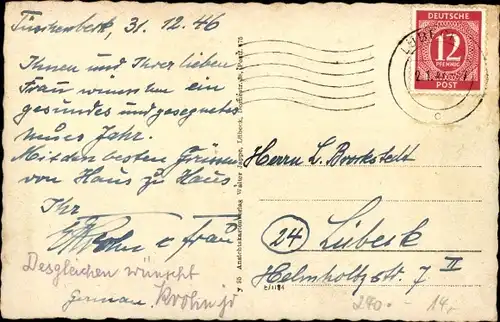 Tüschenbek, 31. 12. 46
Ihnen und Ihrer lieben
Frau wünschen ein
gesundes und gesegnetes
neues Jahr.
Mit den besten Grüssen
von Haus zu Haus
Ihr
u Frau
Desgleichen wünscht
German. Krohn jr
Ansichtskartenverlag Walter Lübeck,
DEUTSCHE
12
PFENNIG
POST
Herrn L. Bockstedt
(24) Lübeck
Helmholtzstr. 7 II
240.- 14,-